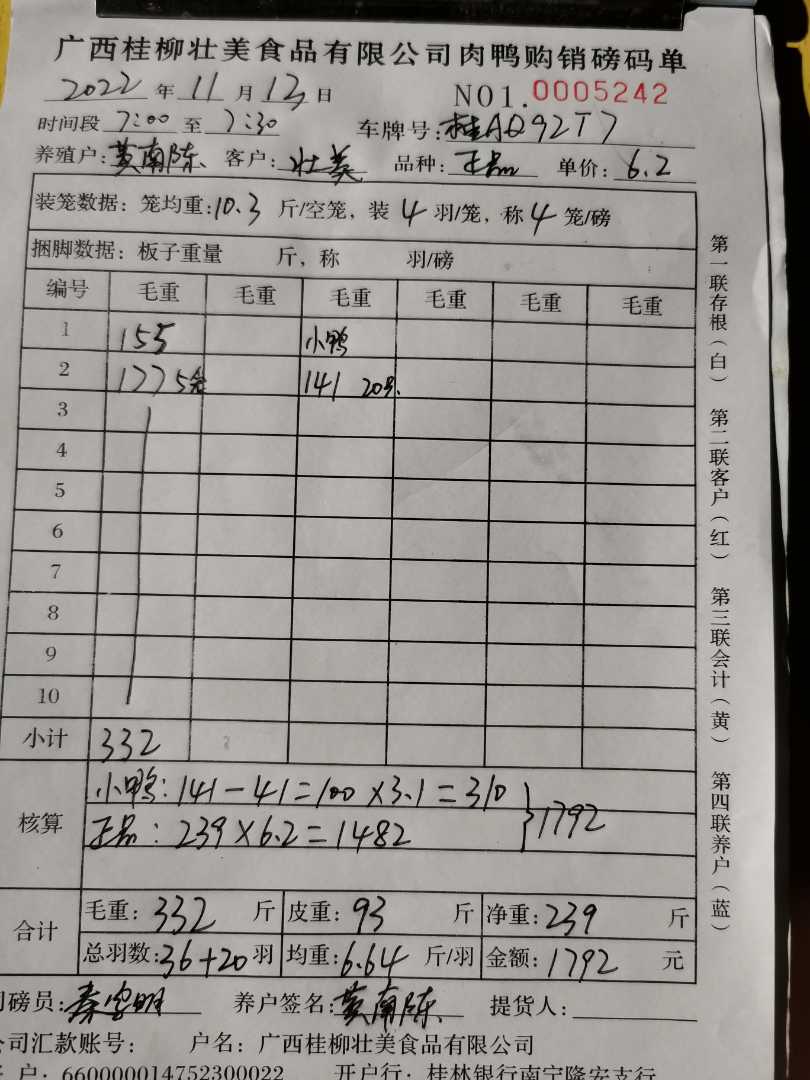 广西桂柳壮美食品有限公司肉鸭购销磅码单
2022 年 11 月 13 日 NO1.0005242
时间段 7:00 至 7:30 车牌号: 桂AQ92T7
养殖户: 黄南陈 客户: 壮美 品种: 正品 单价: 6.2
装笼数据: 笼均重: 10.3 斤/空笼, 装 4 羽/笼, 称 4 笼/磅
捆脚数据: 板子重量 斤, 称 羽/磅
编号 毛重 毛重 毛重 毛重 毛重 毛重
1 155 小鸭
2 177 5笼 141 20只
3
4
5
6
7
8
9
10
小计 332
核算 小鸭: 141-41=100×3.1=310
正品: 239×6.2=1482 }1792
合计 毛重: 332 斤 皮重: 93 斤 净重: 239 斤
总羽数: 36+20 羽 均重: 6.64 斤/羽 金额: 1792 元
司磅员: 养户签名: 黄南陈 提货人:
公司汇款账号: 户名: 广西桂柳壮美食品有限公司
户: 660000014752300022 开户行: 桂林银行南宁隆安支行
第一联存根(白) 第二联客户(红) 第三联会计(黄) 第四联养户(蓝)